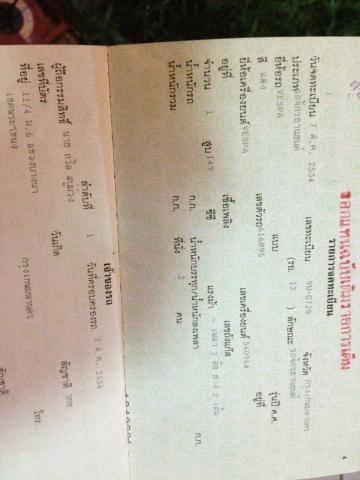 ออกแทนฉบับเดิมรายการเดิม
รายการจดทะเบียน
วันจดทะเบียน 7 ส.ค. 2534 เลขทะเบียน 9บ-0728 จังหวัด กรุงเทพมหานคร
ประเภท รถจักรยานยนต์ (รย. 12 ) ลักษณะ รถจักรยานยนต์
ยี่ห้อรถ VESPA แบบ รุ่นปี ค.ศ.
สี แดง เลขตัวรถ 616895 อยู่ที่
ยี่ห้อเครื่องยนต์ VESPA เลขเครื่องยนต์ 540964
อยู่ที่ เชื้อเพลิง เลขถังแก๊ส
จำนวน 1 สูบ 149 ซีซี แรงม้า - เพลา 2 ล้อ ยาง 2 เส้น
น้ำหนักรถ ก.ก. น้ำหนักบรรทุก/น้ำหนักลงเพลา ก.ก.
น้ำหนักรวม ก.ก. ที่นั่ง 2 คน
เจ้าของรถ
ลำดับที่ 1 วันที่ครอบครองรถ 7 ส.ค. 2534
ผู้ถือกรรมสิทธิ์ นาย
เลขที่บัตร วันเกิด สัญชาติ ไทย
ที่อยู่ 11/4 ม.6 แขวงบางนา
เขตพระโขนง กรุงเทพมหานคร โทร.
สัญชาติ